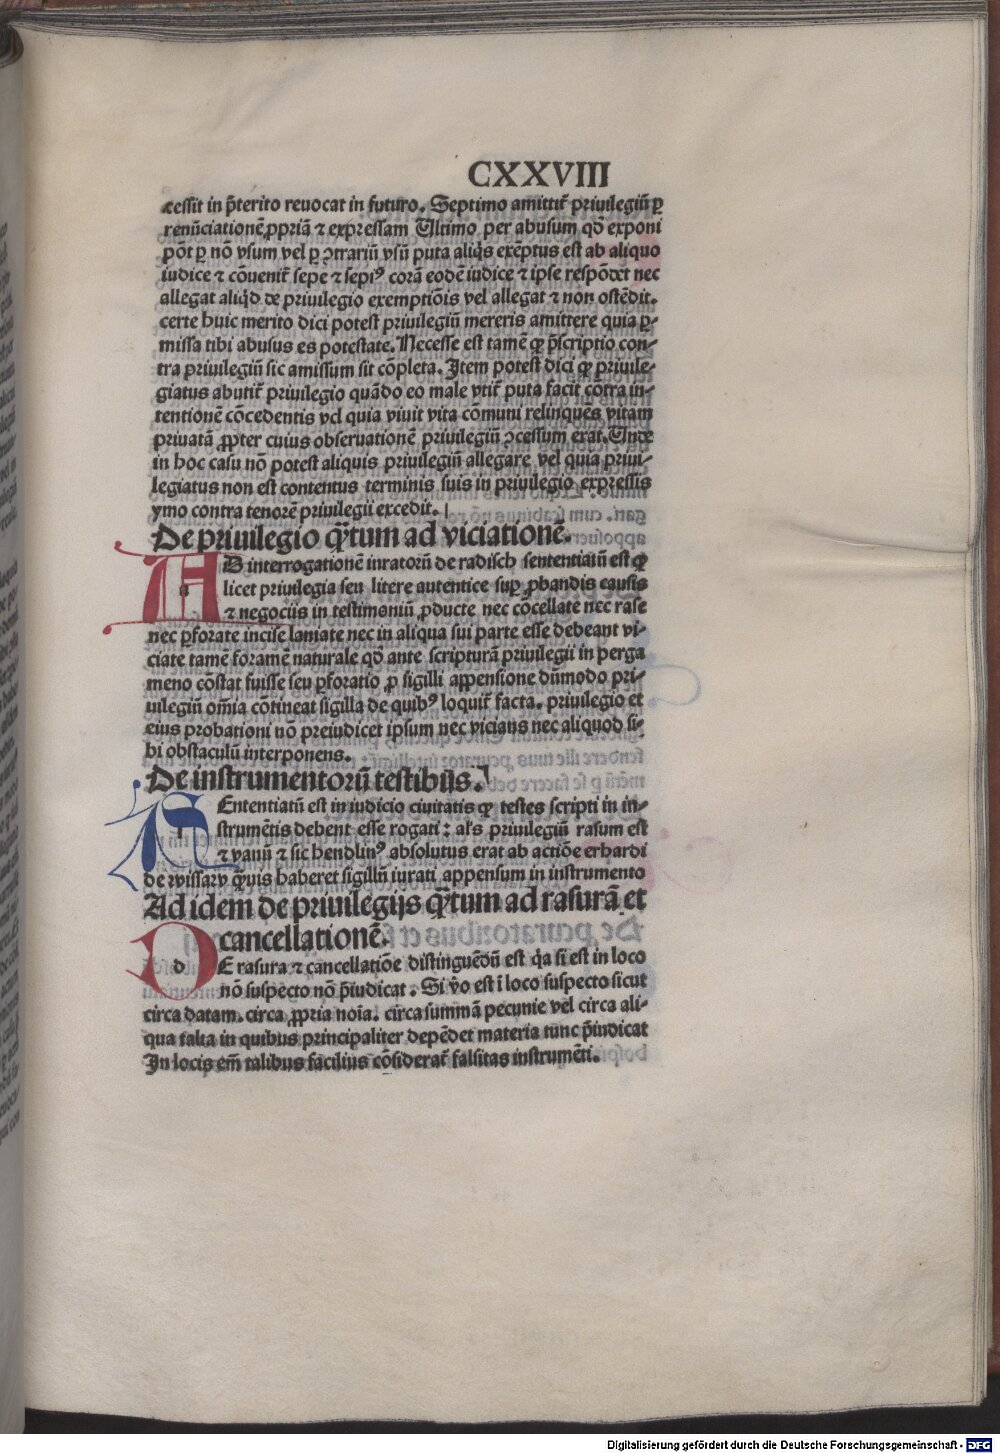 CXXVIII
cessit in p̄terito reuocat in futuro. Septimo amittit᷑ priuilegiū ꝑ
renūciationē ꝓpriā ⁊ expressam Ultimo per abusum qd̄ exponi
pōt ꝑ nō vsum vel ꝑ ↄtrariū vsū puta aliq̇s exēptus est ab aliquo
iudice ⁊ cōuenit᷑ sepe ⁊ sepiꝰ corā eodē iudice ⁊ ipse respōdet nec
allegat aliq̇d de priuilegio exemptiōis vel allegat ⁊ non ostēdit.
certe huic merito dici potest priuilegiū mereris amittere quia ꝑ-
missa tibi abusus es potestate. Necesse est tamē ꝙ p̄scriptio con-
tra priuilegiū sic amissum sit cōpleta. Item potest dici ꝙ priuile-
giatus abutit᷑ priuilegio quādo eo male vtit᷑ puta facit cōtra in-
tentionē cōcedentis vel quia viuit vita cōmuni relinques vitam
priuatā ꝓpter cuius obseruationē priuilegiū ↄcessum erat. Unde
in hoc casu nō potest aliquis priuilegiū allegare vel quia priui-
legiatus non est contentus terminis suis in priuilegio expressis
ymo contra tenorē priuilegii excedit.
De priuilegio qͣtum ad viciationē.
AD interrogationē iuratorū de radisch sententiatū est ꝙ
licet priuilegia seu litere autentice suꝑ ꝓbandis causis
⁊ negociis in testimoniū ꝓducte nec cōcellate nec rase
nec ꝑforate incise laniate nec in aliqua sui parte esse debeant vi-
ciate tamē foramē naturale qd̄ ante scripturā priuilegii in perga
meno cōstat fuisse seu ꝑforatio ꝓ sigilli appensione dūmodo pri-
uilegiū om̄ia cōtineat sigilla de quibꝰ loquit᷑ facta. priuilegio et
eius probationi nō preiudicet ipsum nec vicians nec aliquod si-
bi obstaculū interponens.
De instrumentorū testibus.
SEntentiatū est in iudicio ciuitatis ꝙ testes scripti in in-
strumētis debent esse rogati : als priuilegiū rasum est
⁊ vanū ⁊ sic hendlinꝰ absolutus erat ab actiōe erhardi
de wissaw qͣuis haberet sigillū iurati appensum in instrumento
Ad idem de priuilegijs qͣtum ad rasurā et
cancellationē.
DE rasura ⁊ cancellatiōe distinguēdū est q̇a si est in loco
nō suspecto nō p̄iudicat. Si v̄o est ī loco suspecto sicut
circa datam. circa ꝓpria noīa. circa summā pecunie vel circa ali-
qua talia in quibus principaliter depēdet materia tunc p̄iudicat
In locis em̄ talibus facilius cōsiderat᷑ falsitas instrumēti.
Digitalisierung gefördert durch die Deutsche Forschungsgemeinschaft - DFG